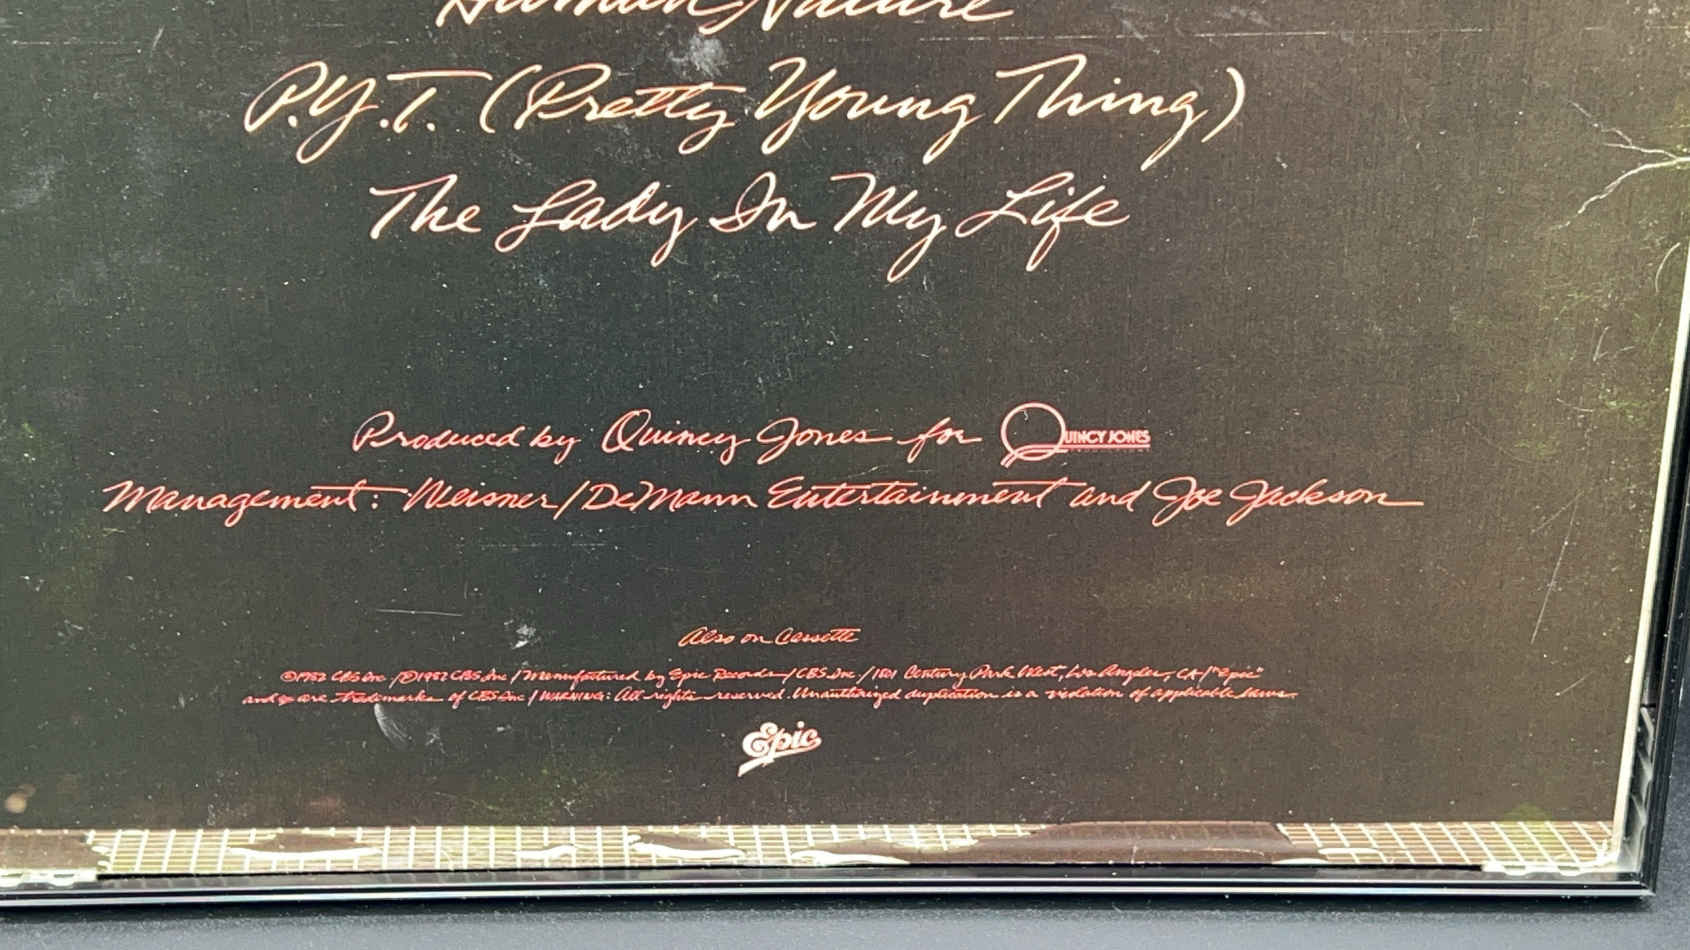 Human Nature
P.Y.T. (Pretty Young Thing)
The Lady In My Life
Produced by Quincy Jones for QUINCY JONES
PRODUCTIONS
Management: Weisner/DeMann Entertainment and Joe Jackson
Also on Cassette
©1982 CBS Inc./℗1982 CBS Inc/Manufactured by Epic Records/CBS Inc/1801 Century Park West, Los Angeles, CA/"Epic"
and are trademarks of CBS Inc/WARNING: All rights reserved. Unauthorized duplication is a violation of applicable laws.
Epic